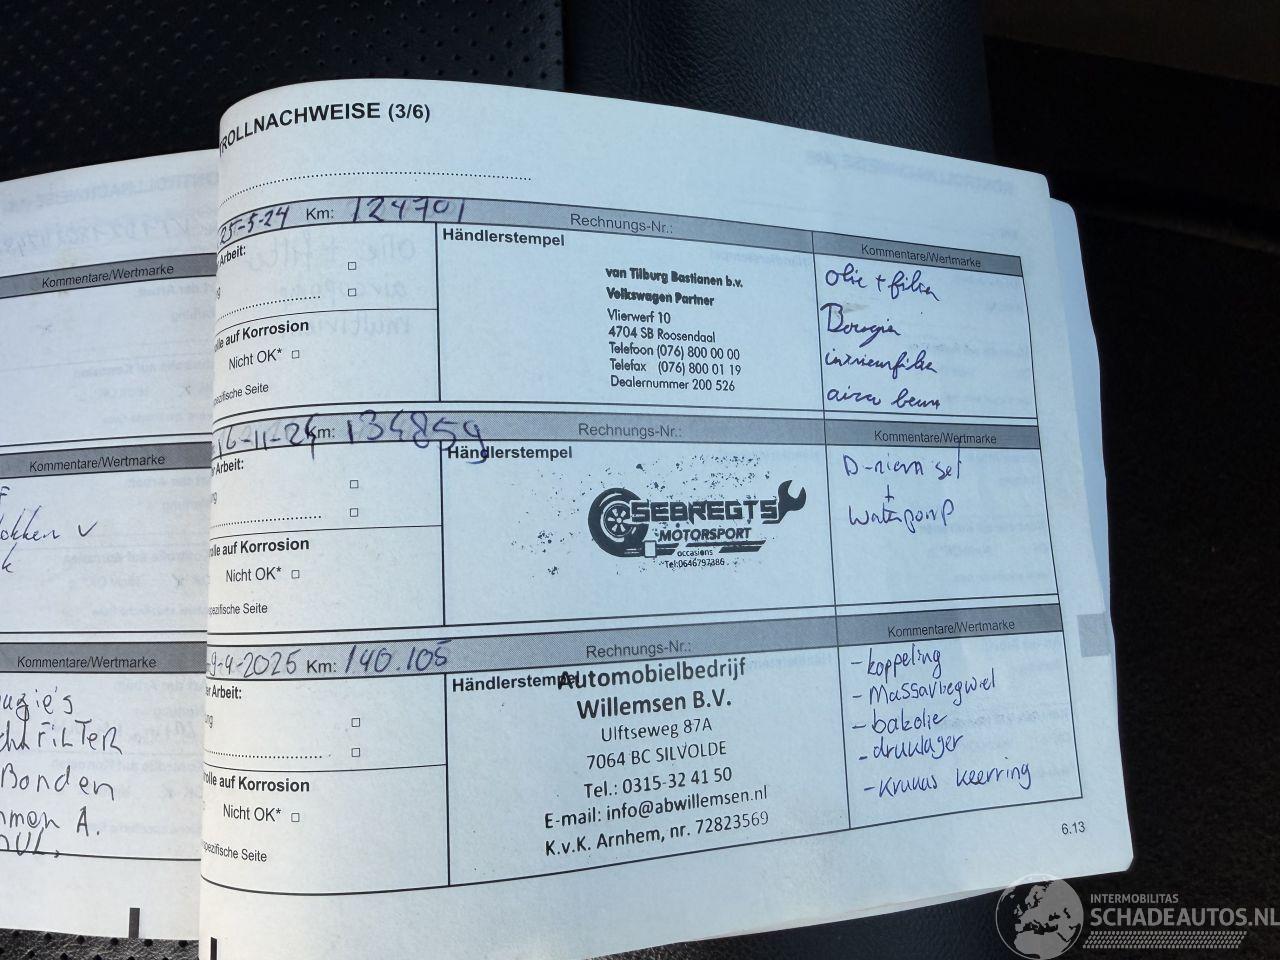 TROLLNACHWEISE (3/6)
25-5-24 Km: 124701 Rechnungs-Nr.:
Arbeit:
Händlerstempel
van Tilburg Bastianen b.v.
Volkswagen Partner
Vlierwerf 10
4704 SB Roosendaal
Telefoon (076) 800 00 00
Telefax (076) 800 01 19
Dealernummer 200 526
Kommentare/Wertmarke
olie + filter
Bougie
interieurfilter
airco beurt
auf Korrosion
Nicht OK*
Seite
16-11-24 Km: 134859 Rechnungs-Nr.:
Arbeit:
Händlerstempel
SEBREGTS
MOTORSPORT
occasions
Tel:0646797386
Kommentare/Wertmarke
D-riem set
+
waterpomp
auf Korrosion
Nicht OK*
Seite
9-4-2025 Km: 140.105 Rechnungs-Nr.:
Arbeit:
Händlerstempel
Automobielbedrijf
Willemsen B.V.
Ulftseweg 87A
7064 BC SILVOLDE
Tel.: 0315-32 41 50
E-mail: info@abwillemsen.nl
K.v.K. Arnhem, nr. 72823569
Kommentare/Wertmarke
- koppeling
- Massavliegwiel
- bakolie
- druklager
- Krukas keerring
auf Korrosion
Nicht OK*
Seite
6.13
Kommentare/Wertmarke
Kommentare/Wertmarke
Kommentare/Wertmarke
FILTER
Bonden
A.
INTERMOBILITAS
SCHADEAUTOS.NL